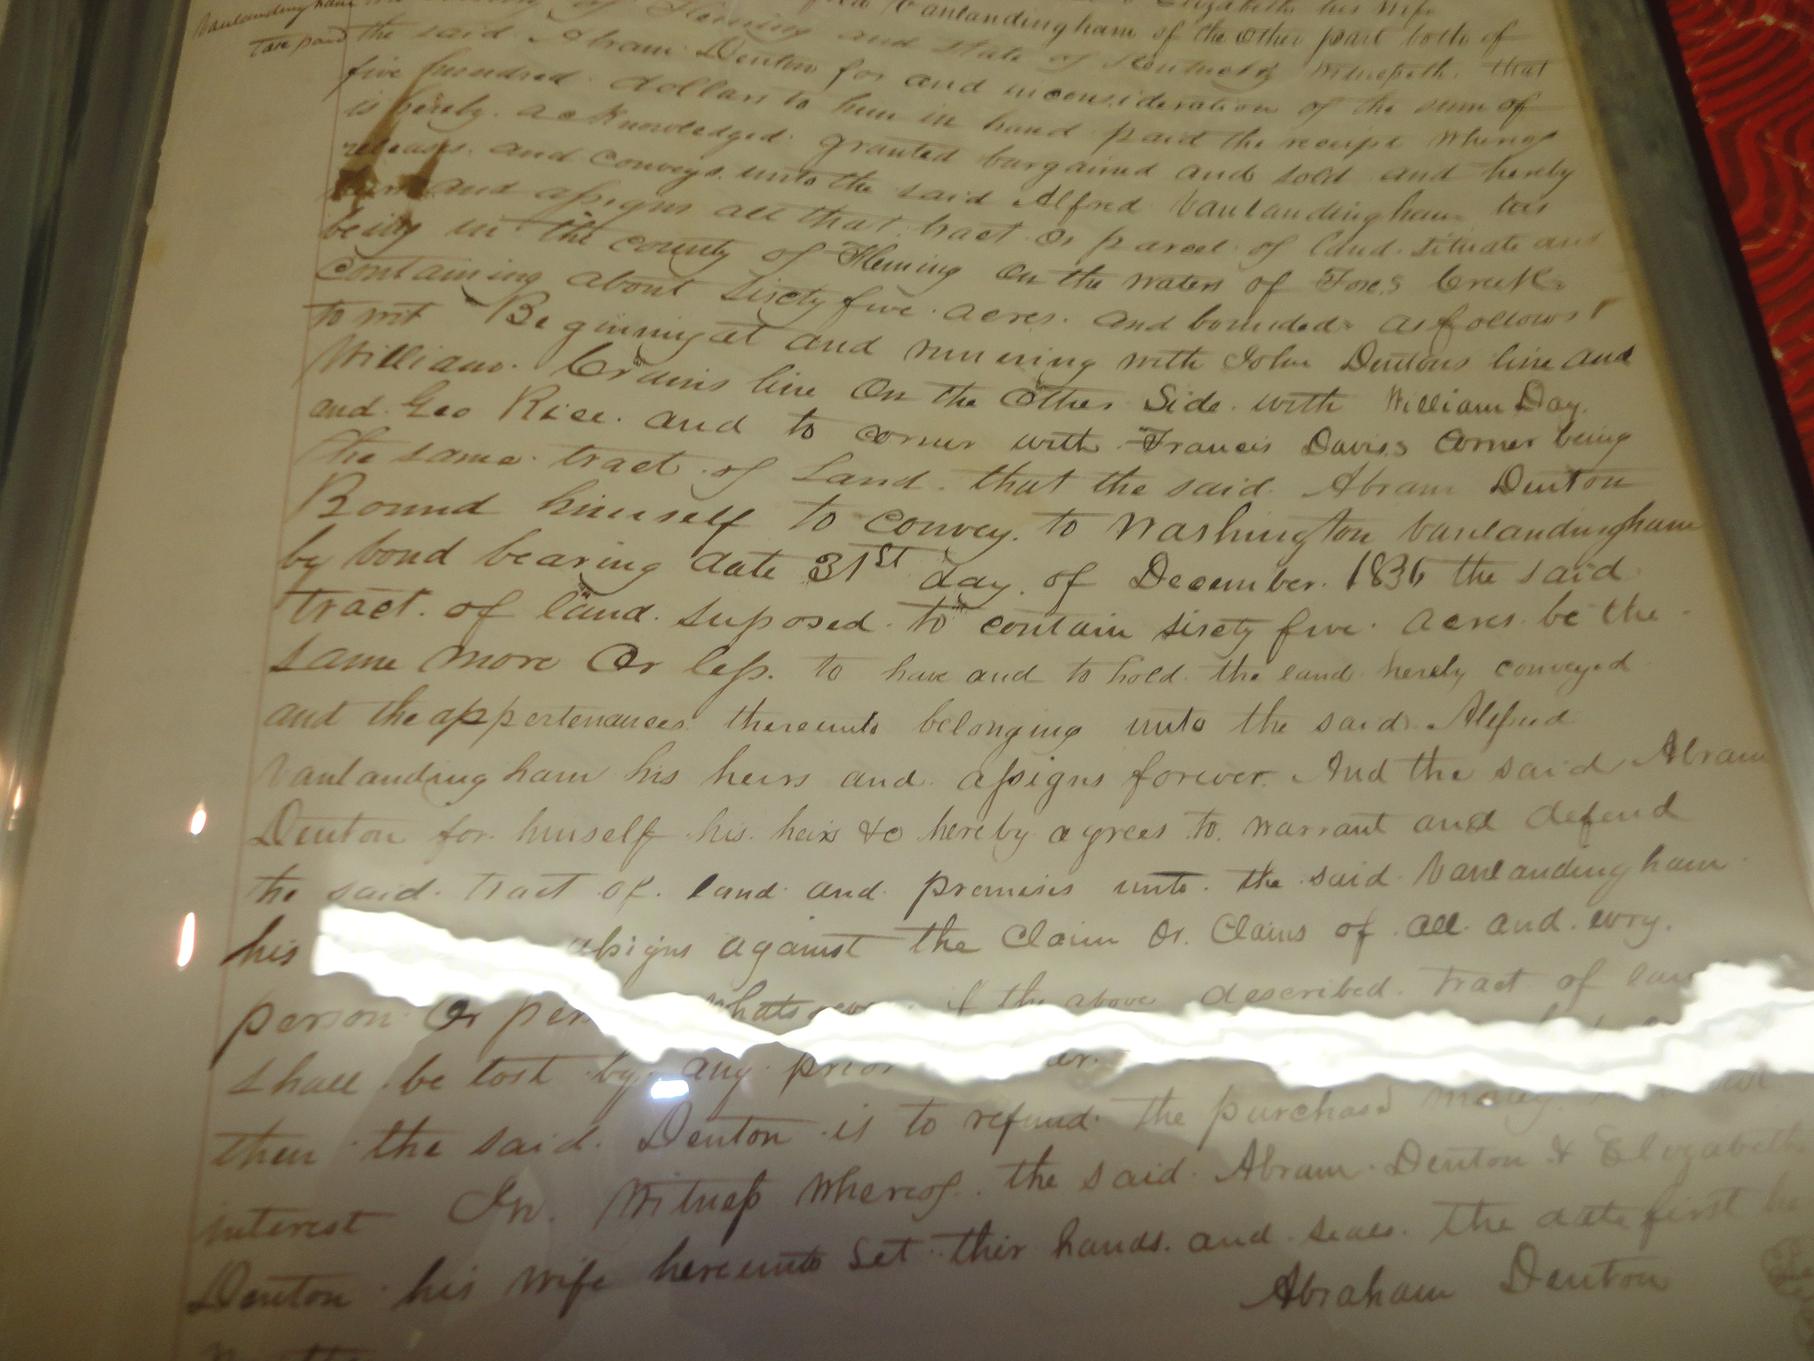 Elizabeth his Wife
Vanlandingham
of Fleming and state of Kentucky Witnesseth. that
Vanlandingham of the other part both of
Tax paid the said Abram Denton for and in consideration of the sum of
five hundred dollars to him in hand paid the receipt whereof
is herely. acknowledged. granted bargained and sold and herely
releases. and conveys. unto the said Alfred Vanlandingham his
heirs and assigns all that tract or parcel of land. situate and
being in the county of Fleming on the waters of Foxes Creek
containing about sixty five. acres. and bounded as follows
to wit Beginning at and running with John Dentons line and
William. Crains line On the Other Side. with William Day.
and. Geo Rice. and to corner with Francis Daviss corner being
the same tract of Land. that the said. Abram Denton
Bound himself to convey. to Washington Vanlandingham
by bond bearing date 31st day. of December. 1836 the said
tract. of land. suposed. to contain sixty five. acres. be the
same more Or less. to have and to hold the land herely conveyed
and the appertenances thereunto belonging unto the said. Alfred
Vanlandingham his heirs and. assigns forever. And the said Abram
Denton for. himself his. heirs &c hereby agrees to. warrant and defend
the said. tract of. land and. premises unto. the said Vanlandingham
his assigns against the Claim Or. Claims of all and. evry.
person Or if the above described. tract of
shall be lost by any prior
then the said. Denton is to refund. the purchase money
interest In. Witness Whereof. the said. Abram Denton & Elizabeth
Denton his wife hereunto Set thir hands. and seals. the date first
Abraham Denton